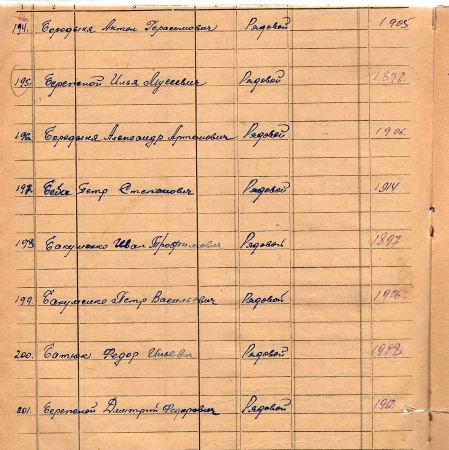 194. Бородыня Антон Герасимович Рядовой 1905
195. Берепской Илья Мусеевич Рядовой 1898.
196. Бородыня Александр Артамович Рядовой 1906.
197. Петр Степанович Рядовой 1914
198 Бакуменко Иван Трофимович Рядовой 1897
199 Бакуменко Петр Васильевич Рядовой 1906
200. Батюк Федор Ильевич Рядовой
201. Берепской Дмитрий Федорович Рядовой 1912